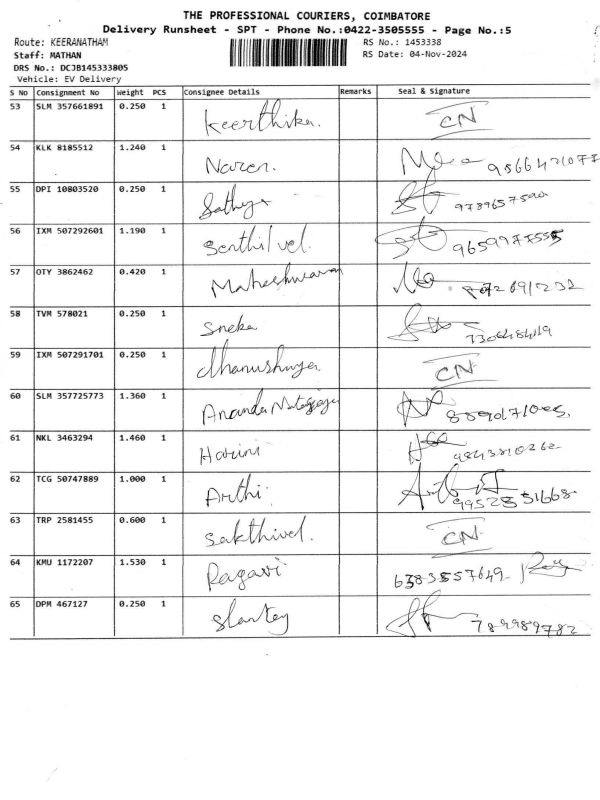 THE PROFESSIONAL COURIERS, COIMBATORE
Delivery Runsheet - SPT - Phone No.:0422-3505555 - Page No.:5
Route: KEERANATHAM RS No.: 1453338
Staff: MATHAN RS Date: 04-Nov-2024
DRS No.: DCJB145333805
Vehicle: EV Delivery
S No Consignment No Weight PCS Consignee Details Remarks Seal & Signature
53 SLM 357661891 0.250 1 Keerthika. CN
54 KLK 8185512 1.240 1 Naren.
55 DPI 10803520 0.250 1 Sathya
56 IXM 507292601 1.190 1 Senthilvel. 9659977555
57 OTY 3862462 0.420 1 Maheshwaran
58 TVM 578021 0.250 1 Sneka
59 IXM 507291701 0.250 1 CN
60 SLM 357725773 1.360 1 Ananda
61 NKL 3463294 1.460 1 Harini
62 TCG 50747889 1.000 1 Arthi.
63 TRP 2581455 0.600 1 Sakthivel. CN
64 KMU 1172207 1.530 1 Ragavi 6383557649
65 DPM 467127 0.250 1